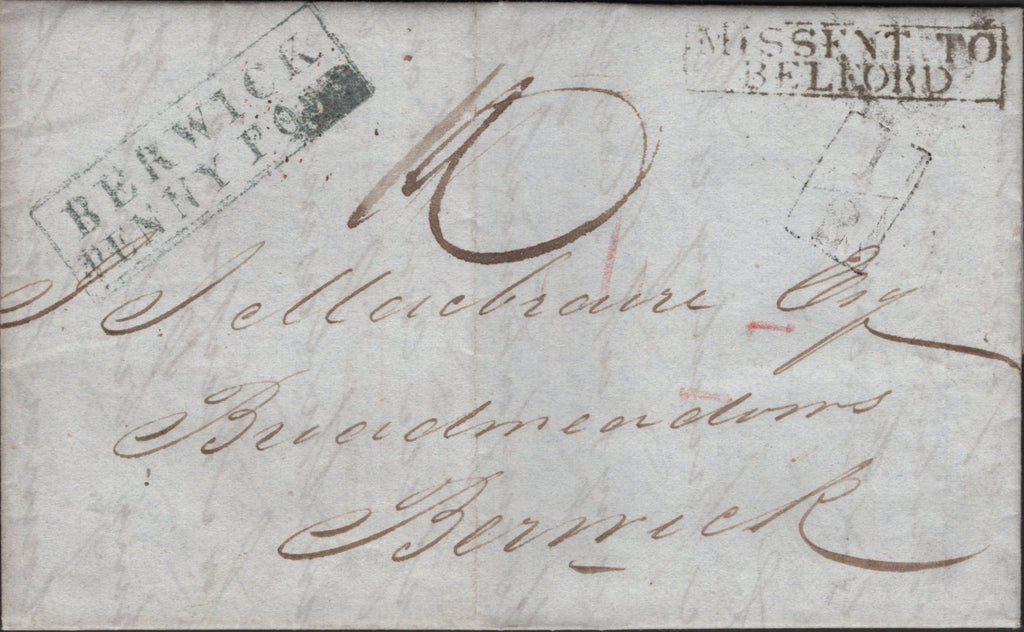 BERWICK
PENNY POST
MISSENT TO
BELFORD
1
2
10
J J Macbraire Esq
Broadmeadows
Berwick